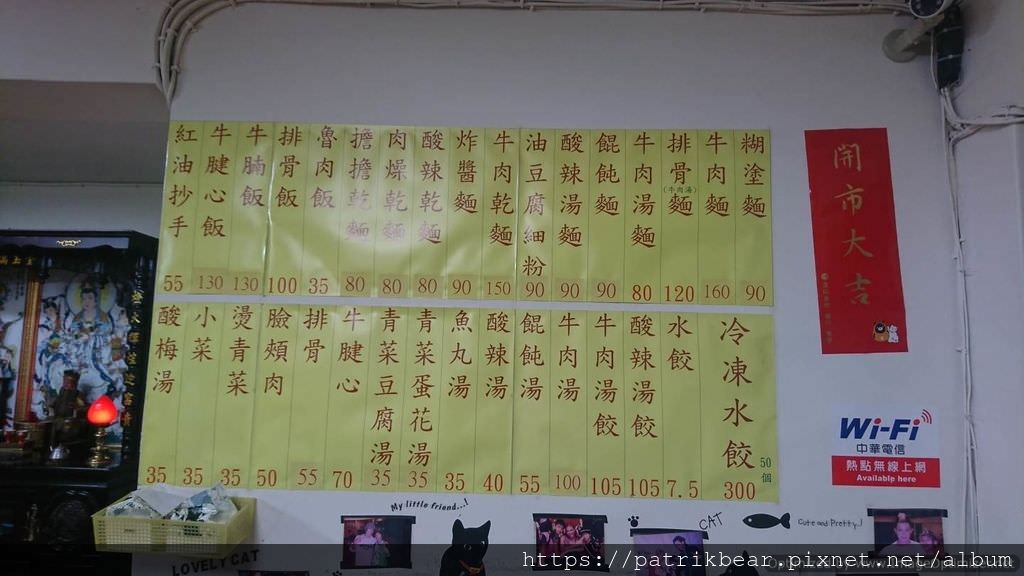 糊塗麵 90
牛肉麵 160
排骨麵 (牛肉湯) 120
牛肉湯麵 80
餛飩麵 90
酸辣湯麵 90
油豆腐細粉 90
牛肉乾麵 150
炸醬麵 90
酸辣乾麵 80
肉燥乾麵 80
擔擔乾麵 80
魯肉飯 35
排骨飯 100
牛腩飯 130
牛腱心飯 130
紅油抄手 55
冷凍水餃 50個 300
水餃 7.5
酸辣湯餃 105
牛肉湯餃 105
牛肉湯 100
餛飩湯 55
酸辣湯 40
魚丸湯 35
青菜蛋花湯 35
青菜豆腐湯 35
牛腱心 70
排骨 55
臉頰肉 50
燙青菜 35
小菜 35
酸梅湯 35
開市大吉
Wi-Fi
中華電信
熱點無線上網
Available here
My little friend...!
CAT
Cute and Pretty..!
LOVELY CAT
https://patrikbear.pixnet.net/album